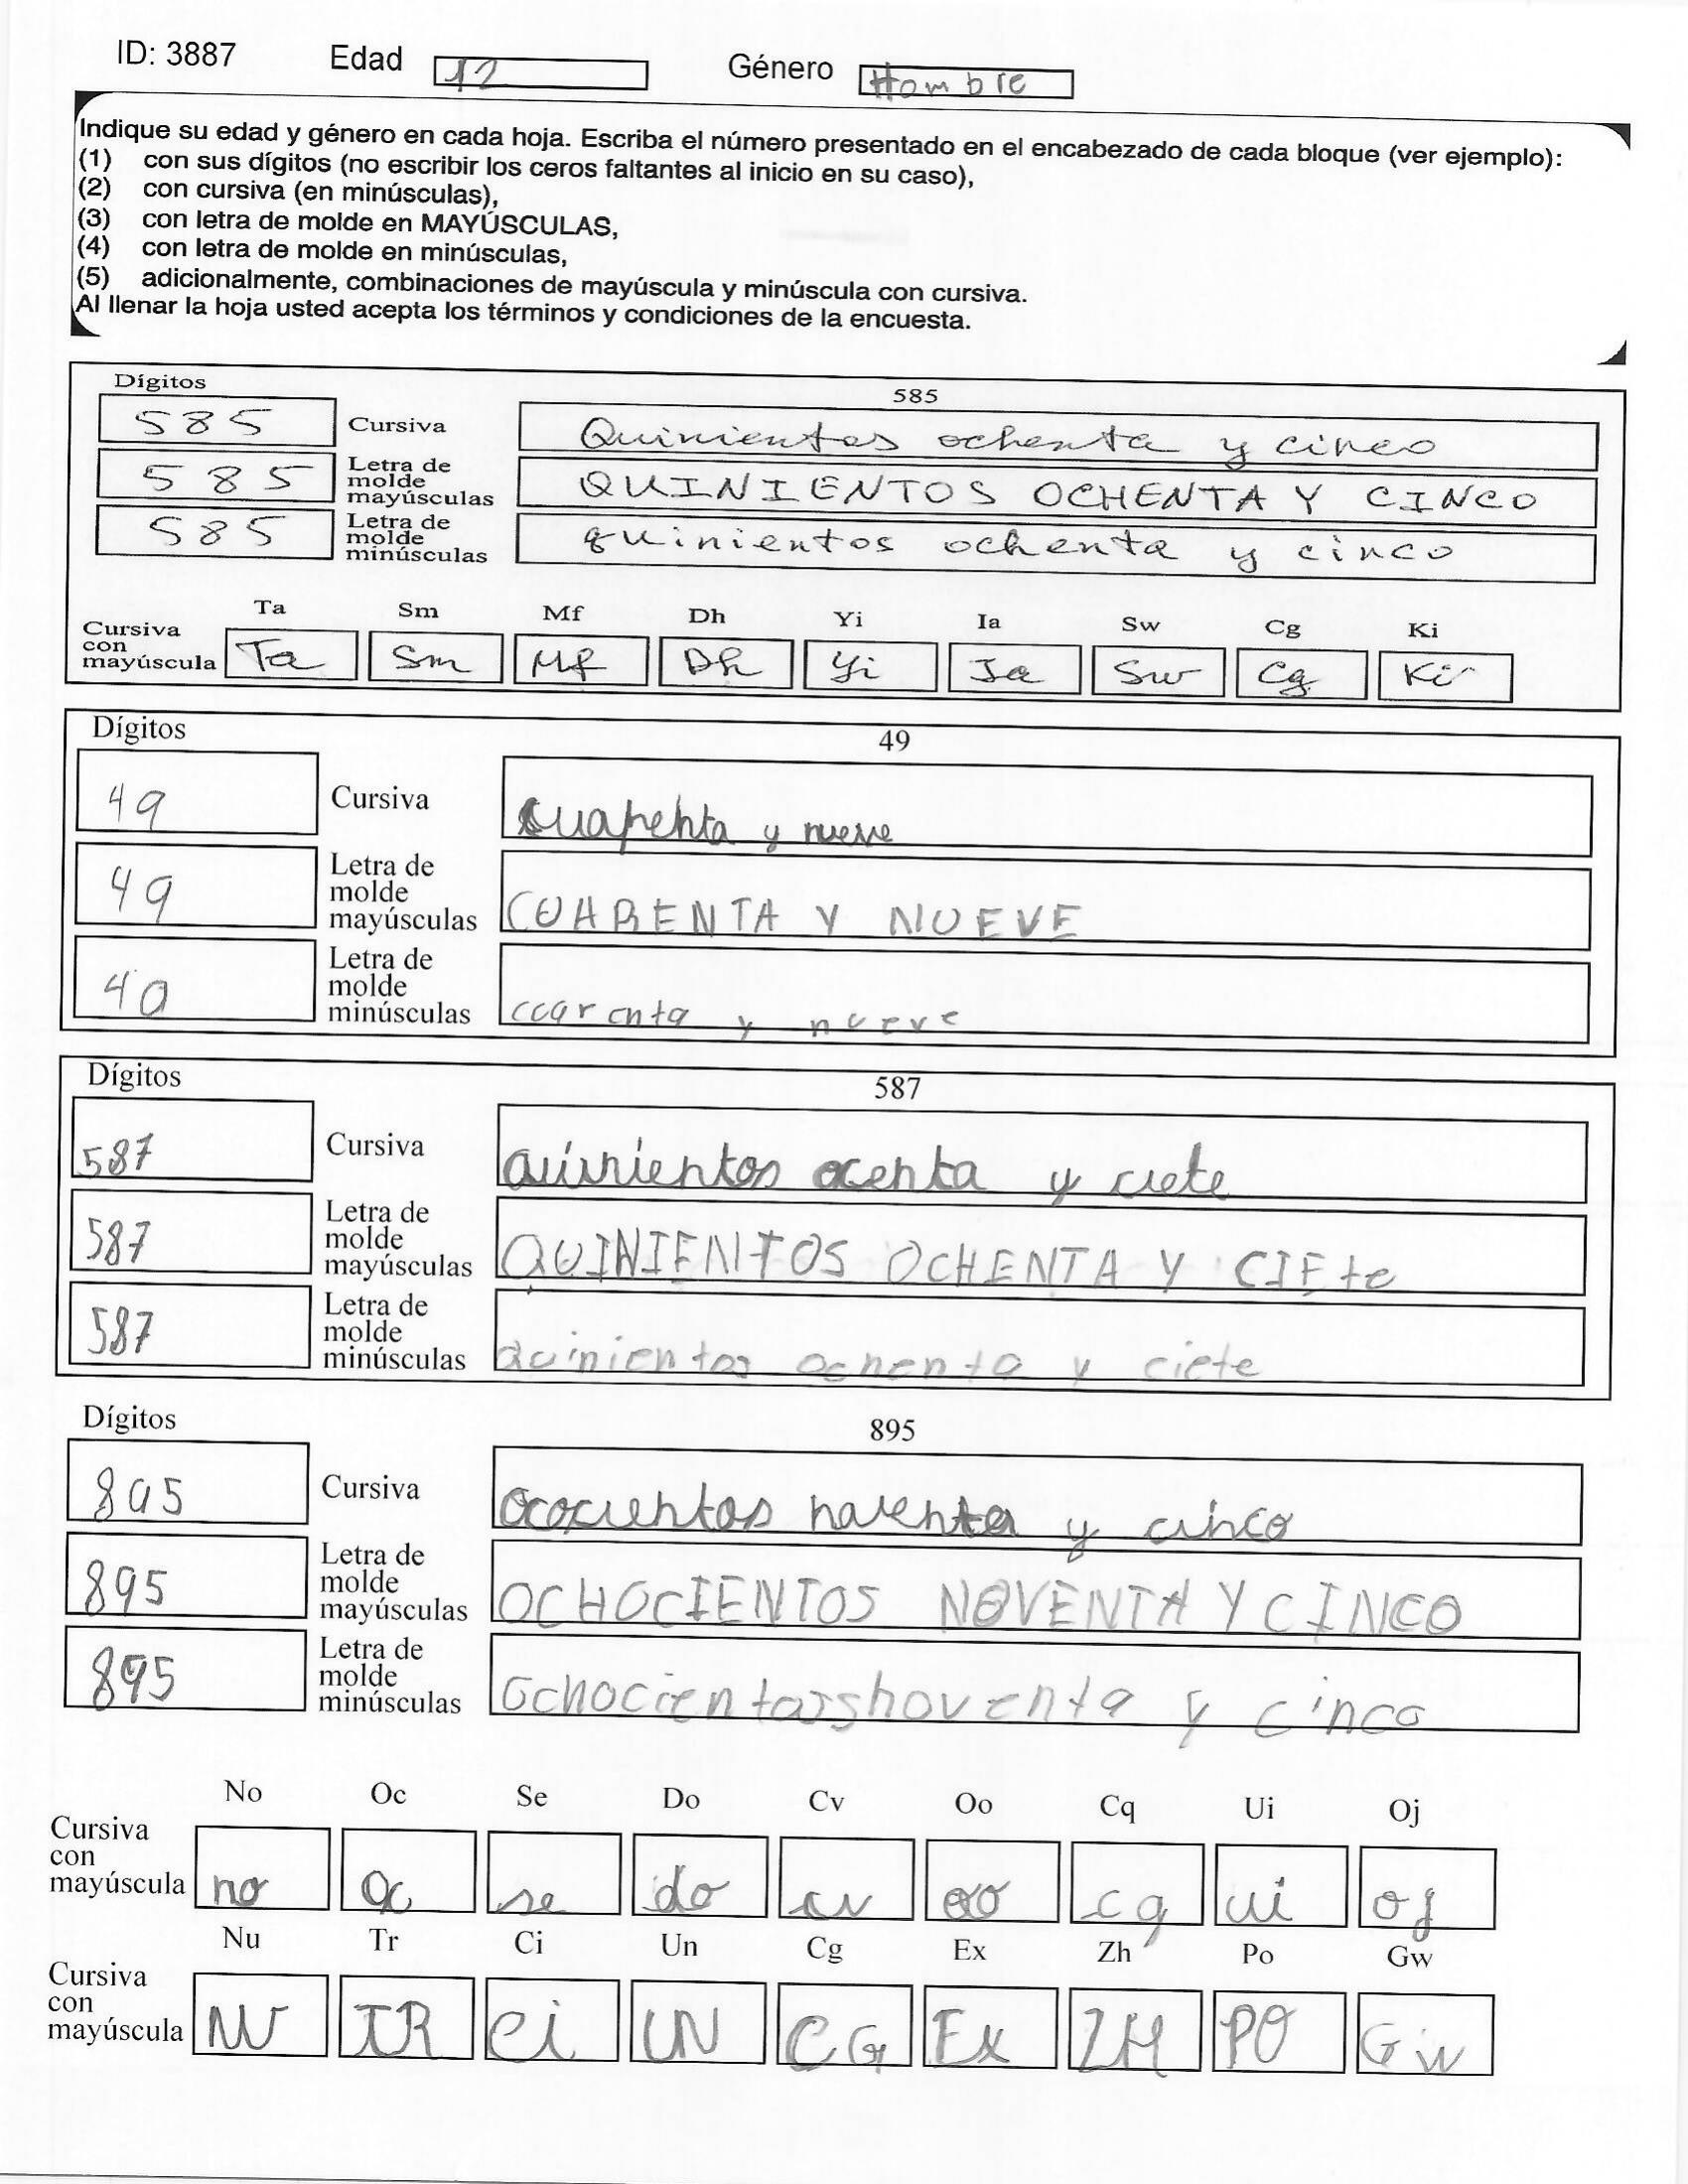 ID: 3887 Edad 12 Género Hombre
Indique su edad y género en cada hoja. Escriba el número presentado en el encabezado de cada bloque (ver ejemplo):
(1) con sus dígitos (no escribir los ceros faltantes al inicio en su caso),
(2) con cursiva (en minúsculas),
(3) con letra de molde en MAYÚSCULAS,
(4) con letra de molde en minúsculas,
(5) adicionalmente, combinaciones de mayúscula y minúscula con cursiva.
Al llenar la hoja usted acepta los términos y condiciones de la encuesta.
Dígitos 585
585 Cursiva Quinientos ochenta y cinco
585 Letra de molde mayúsculas QUINIENTOS OCHENTA Y CINCO
585 Letra de molde minúsculas quinientos ochenta y cinco
Ta Sm Mf Dh Yi Ia Sw Cg Ki
Cursiva con mayúscula Ta Sm Mf Dh Yi Ia Sw Cg Ki
Dígitos 49
49 Cursiva cuarenta y nueve
49 Letra de molde mayúsculas CUARENTA Y NUEVE
49 Letra de molde minúsculas ccarenta y nueve
Dígitos 587
587 Cursiva quinientos ocenta y ciete
587 Letra de molde mayúsculas QUINIENTOS OCHENTA Y CIEte
587 Letra de molde minúsculas quinientos ochenta y ciete
Dígitos 895
895 Cursiva ococientos noventa y cinco
895 Letra de molde mayúsculas OCHOCIENTOS NOVENTA Y CINCO
895 Letra de molde minúsculas ochocientos noventa y cinco
No Oc Se Do Cv Oo Cq Ui Oj
Cursiva con mayúscula no oc se do cv oo cq ui oj
Nu Tr Ci Un Cg Ex Zh Po Gw
Cursiva con mayúscula NU TR Ci UN CG Ex ZH PO Gw